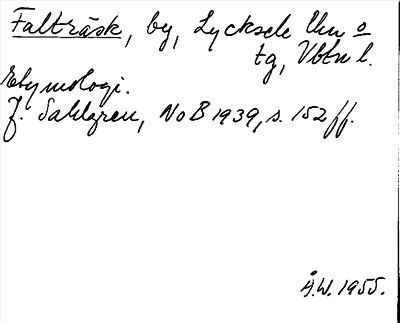 Falträsk, by, Lycksele lkn o
tg, Vbtn l.
Etymologi.
J. Sahlgren, NoB 1939, s. 152 ff.
Å.W. 1955.